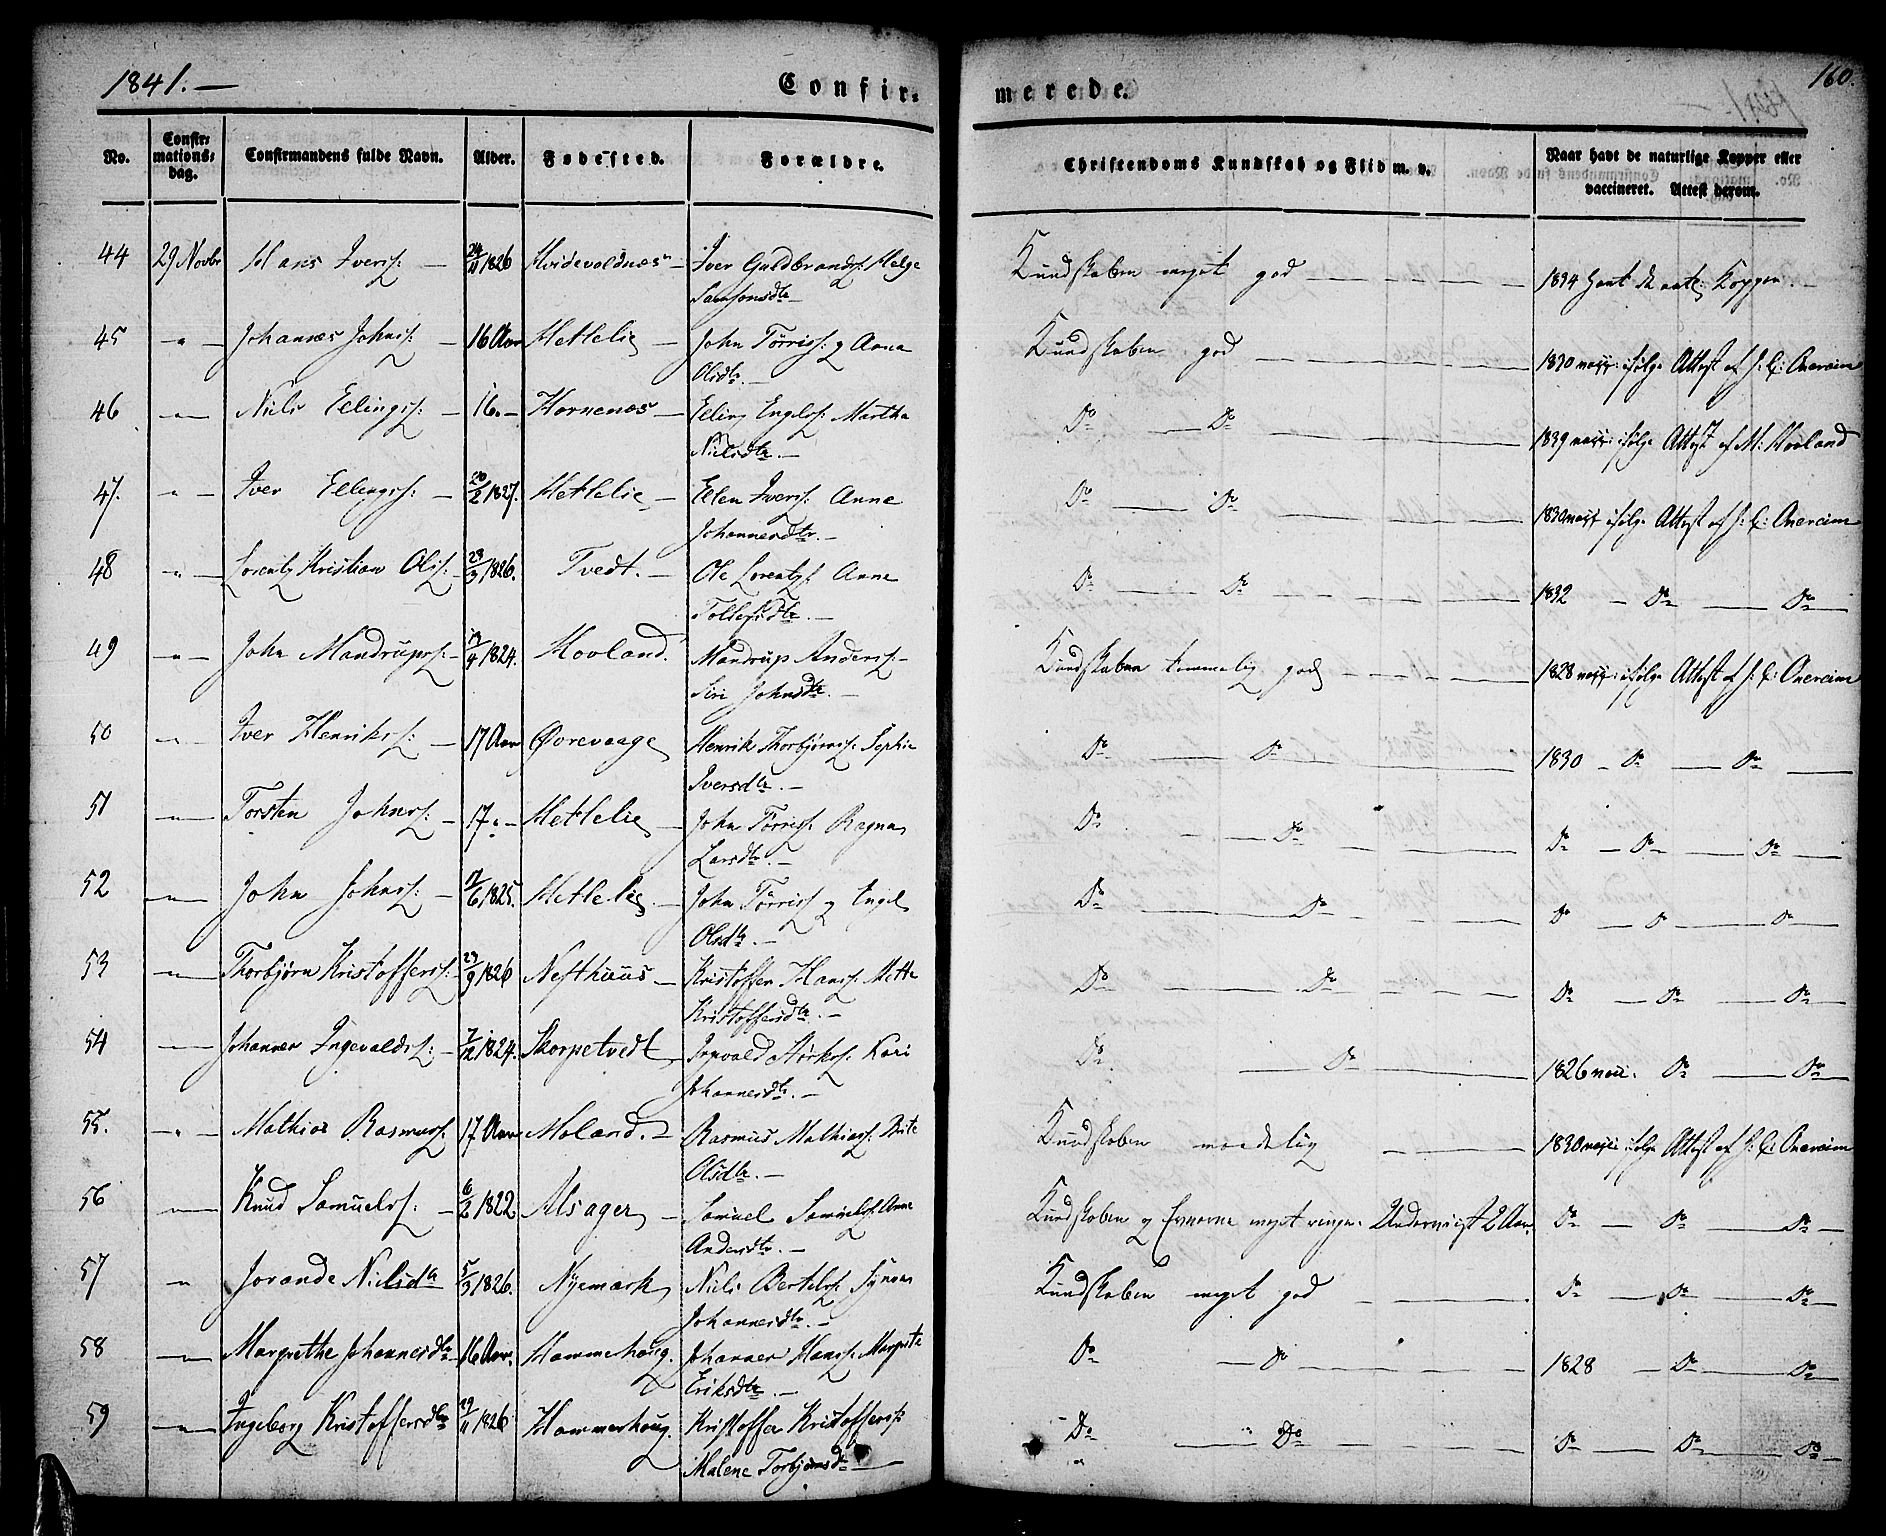 1841. —
Confir-
merede.
160.
No.
Confir-
mations-
dag.
Confirmandens fulde Navn.
Alder.
Fødested.
Forældre.
Christendoms Kundskab og Flid m. v.
Naar havt de naturlige Kopper eller
vaccineret. Attest derom.
44 29 Novbr Hans Iverss: — 24/11 1826 Hvidevoldnæs — Iver Guldbrandss: Helge Kundskaben meget god — 1834 havt de natl: Kopper. —
Samsonsdtr —
45 " — Johannes Johnss: — 16 Aar Hetlelie — John Tørriss: og Anna Kundskaben god — 1830 vacc: ifølge Attest af J: C:
Olsdtr. —
46 — Niels Ellingss: — 16. — Hornenæs — Elling Engelss: Martha Do — Do — 1839 vacc: ifølge Attest af M: Hovland
Nielsdtr. —
47. " — Iver Ellingss: — 20/2 1827. Hetlelie — Ellen Iverss: Anne Do — Do — 1830 vacc: ifølge Attest af J: C:
Johannesdtr. —
48 " — Lorentz Kristian Olss: — 23/3 1826. Tvedt. — Ole Lorentzs: Anne Do — Do — 1832 — Do — Do —
Tollefsdtr. —
49 " — John Mandrupss: — /4 1824. Hovland. Mandrup Anderss: — Kundskaben temmelig god — 1828 vacc: ifølge Attest af J: C:
Siri Johnsdtr. —
50 — Iver Henrikss: — 17 Aar Øvrevaage Henrik Thorbjørnss: Sophie Do — Do — 1830 — Do — Do —
Iversdtr. —
51 — Torsten Johnss: — 17 " — Hetlelie — John Tørriss: Ragna Do — Do — Do — Do — Do —
Larsdtr. —
52 — John Johnss: — /6 1825. Hetlelie. — John Tørriss: og Engel Do — Do — Do — Do — Do —
Olsdtr. —
53 — Thorbjørn Kristofferss: 23/9 1826 Nefthuus — Kristoffer Hanss: Mette Do — Do — Do — Do — Do —
Kristoffersdtr. —
54 — Johannes Ingevaldss: — 7/12 1824. Skorpetvedt Ingvald Størkss: Kari Do. — Do — 1826 vacc. Do — Do —
Johannesdtr. —
55. " — Mathias Rasmuss: 17 Aar Moland. — Rasmus Mathiass: Brite Kundskaben maadelig — 1830 vacc: ifølge Attest af J: C:
Olsdtr. —
56 — Knud Samuelss: — 6/2 1822. Alsager — Samuel Samuelss: Anne Kundskaben og Evnerne meget ringe. Underviist 2 Aar. Do — Do — Do —
Andersdtr. —
57 " Jorande Nielsdtr 5/3 1826. Nyemark Niels Bertelss: Synnøe Kundskaben meget god — Do — Do — Do —
Johannesdtr. —
58 — Margrethe Johannesdtr — 16 Aar. Hammerhoug. Johannes Hanss: Margrete Do — Do — 1828 — Do — Do
Eriksdtr. —
59 — Ingeborg Kristoffersdtr 29/11 1826 Hammerhoug. Kristoffer Kristofferss: Do — Do — Do — Do — Do —
Malene Torbjørnsdtr —